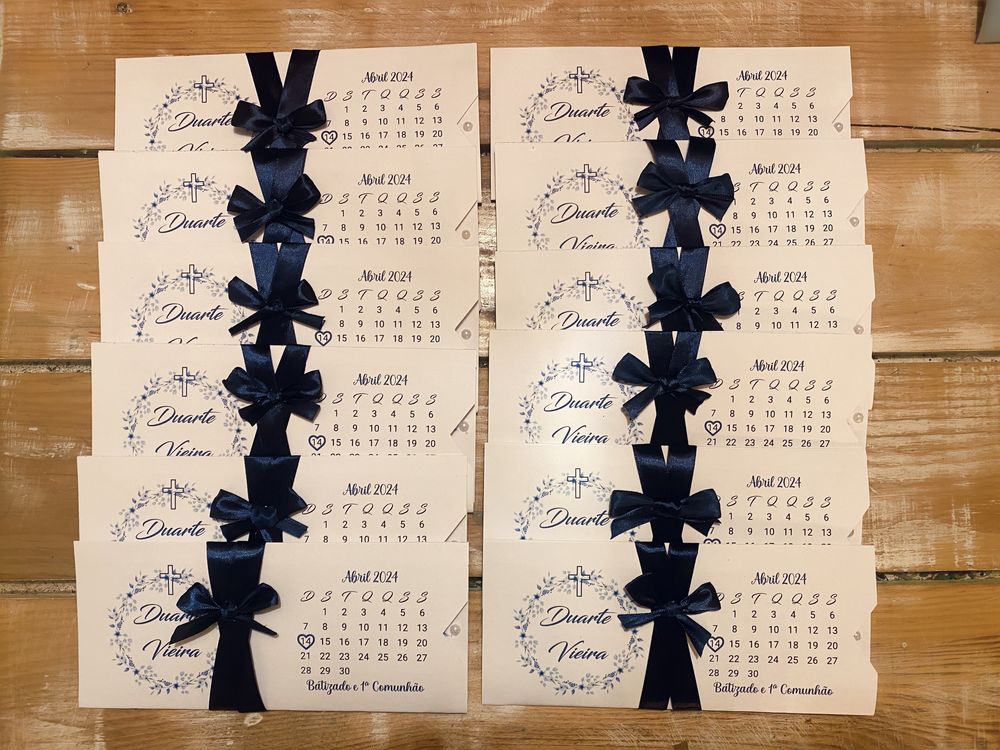 Duarte
Abril 2024
D S T Q Q S S
1 2 3 4 5 6
8 9 10 11 12 13
14 15 16 17 18 19 20
Duarte
Abril 2024
D S T Q Q S S
1 2 3 4 5 6
8 9 10 11 12 13
14 15 16 17 18 19 20
Duarte
Abril 2024
D S T Q Q S S
1 2 3 4 5 6
8 9 10 11 12 13
14 15 16 17 18 19 20
Duarte
Vieira
Abril 2024
D S T Q Q S S
1 2 3 4 5 6
7 8 9 10 11 12 13
14 15 16 17 18 19 20
Duarte
Abril 2024
D S T Q Q S S
1 2 3 4 5 6
7 8 9 10 11 12 13
Duarte
Vieira
Abril 2024
D S T Q Q S S
1 2 3 4 5 6
7 8 9 10 11 12 13
14 15 16 17 18 19 20
21 22 23 24 25 26 27
28 29 30
Batizado e 1ª Comunhão
Duarte
Abril 2024
S T Q Q S S
2 3 4 5 6
7 8 9 10 11 12 13
14 15 16 17 18 19 20
Duarte
Vieira
Abril 2024
S T Q Q S S
2 3 4 5 6
8 9 10 11 12 13
14 15 16 17 18 19 20
21 22 23 24 25 26 27
Duarte
Abril 2024
S T Q Q S S
1 2 3 4 5 6
8 9 10 11 12 13
Duarte
Vieira
Abril 2024
D S T Q Q S S
1 2 3 4 5 6
7 8 9 10 11 12 13
14 15 16 17 18 19 20
21 22 23 24 25 26 27
Duarte
Abril 2024
S T Q Q S S
1 2 3 4 5 6
7 8 9 10 11 12 13
Duarte
Vieira
Abril 2024
D S T Q Q S S
1 2 3 4 5 6
7 8 9 10 11 12 13
14 15 16 17 18 19 20
21 22 23 24 25 26 27
28 29 30
Batizado e 1ª Comunhão